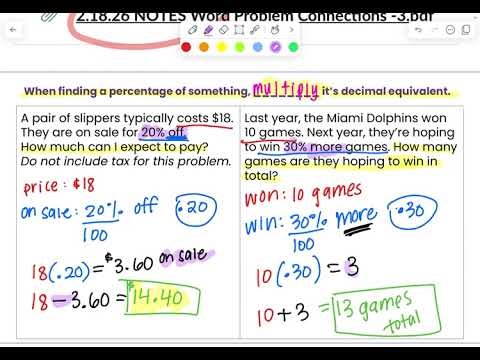 2.18.26 NOTES Word Problem Connections -3.pdf
When finding a percentage of something, multiply it's decimal equivalent.
A pair of slippers typically costs $18.
They are on sale for 20% off.
How much can I expect to pay?
Do not include tax for this problem.
price: $18
on sale: 20% off .20
100
18(.20) = $3.60 on sale
18 - 3.60 = $14.40
Last year, the Miami Dolphins won
10 games. Next year, they're hoping
to win 30% more games. How many
games are they hoping to win in
total?
won: 10 games
win: 30% more .30
100
10(.30) = 3
10 + 3 = 13 games
total